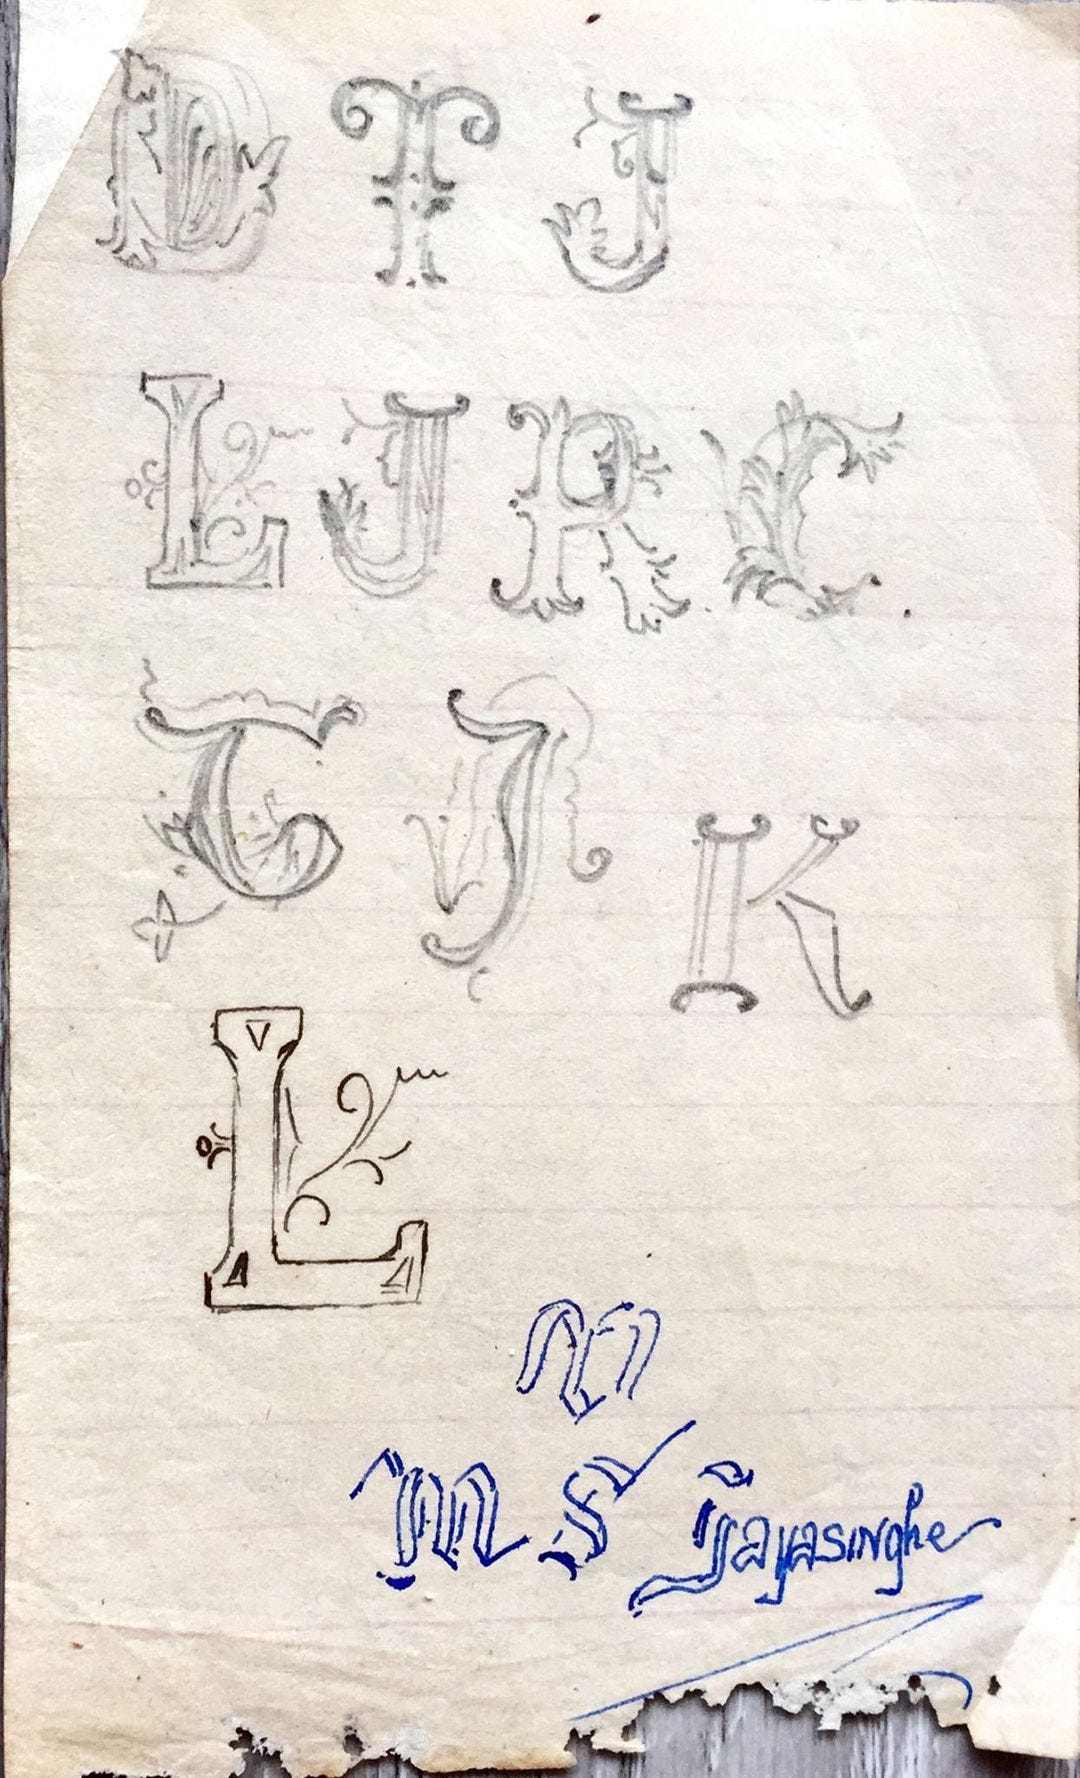 D T J
L J R C
T J K
L
M S Jayasinghe